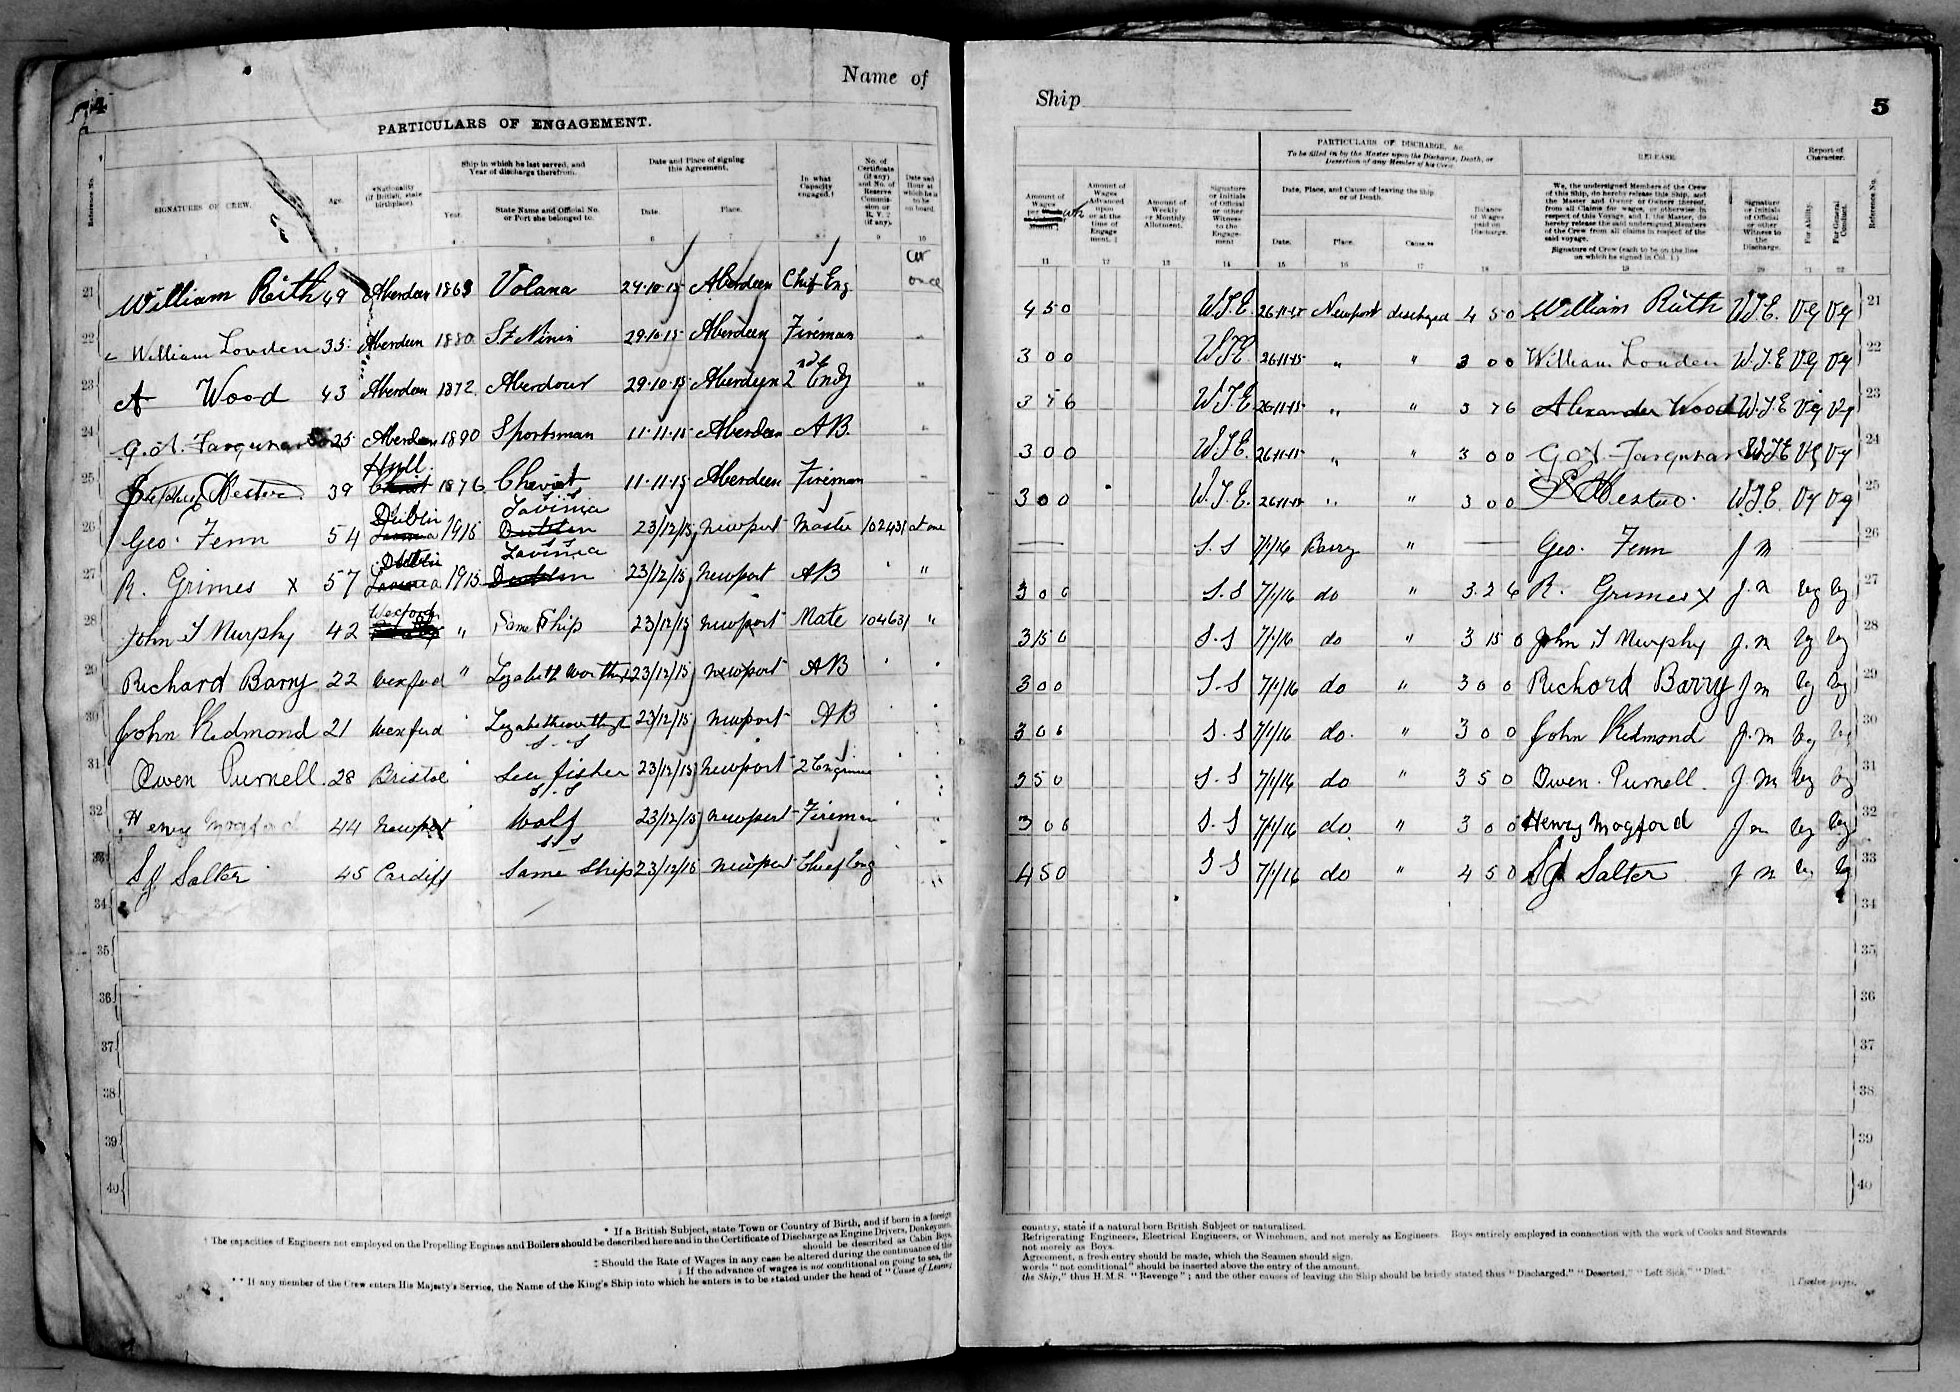 Name of
4
PARTICULARS OF ENGAGEMENT.
Reference No.
SIGNATURES OF CREW.
Age.
*Nationality (if British, state birthplace).
Ship in which he last served, and Year of discharge therefrom.
Year.
State Name and Official No. or Port she belonged to.
Date and Place of signing this Agreement.
Date.
Place.
In what Capacity engaged.†
No. of Certificate (if any) and No. of Reserve Commission or R. V. 2 (if any).
Date and Hour at which he is to be on board.
1 2 3 4 5 6 7 8 9 10
21 William 49 Aberdeen 1863 Volana 29·10·15 Aberdeen Chif Eng at once
22 William Louden 35 Aberdeen 1880 St Ninin 29·10·15 Aberdeen Fireman "
23 A Wood 43 Aberdeen 1872 Aberdour 29·10·15 Aberdeen 2nd Eng "
24 G. A. Farquhar 25 Aberdeen 1890 Sportsman 11·11·15 Aberdeen A B. "
25 39 Hull 1876 Cheviot 11·11·15 Aberdeen Fireman
26 Geo. Fenn 54 Dublin 1915 S.S Lavinia 23/12/15 Newport Master 102431 at once
27 R. Grimes x 57 Dublin 1915 S S Lavinia 23/12/15 Newport AB " "
28 John S Murphy 42 Wexford " Same Ship 23/12/15 Newport Mate 104631 "
29 Richard Barry 22 Wexford " 23/12/15 Newport AB
30 John Redmond 21 Wexford " 23/12/15 Newport AB
31 Owen Purnell. 28 Bristol " S. S fisher 23/12/15 Newport 2 Engine
32 Henry Mogford 44 Newport " S. S Wolf 23/12/15 Newport Fireman
33 S J Salter 45 Cardiff S S Same Ship 23/12/15 Newport Chief Eng
34
35
36
37
38
39
40
* If a British Subject, state Town or Country of Birth, and if born in a foreign
† The capacities of Engineers not employed on the Propelling Engines and Boilers should be described here and in the Certificate of Discharge as Engine Drivers, Donkeymen,
should be described as Cabin Boys,
‡ Should the Rate of Wages in any case be altered during the continuance of the
§ If the advance of wages is not conditional on going to sea, the
** If any member of the Crew enters His Majesty's Service, the Name of the King's Ship into which he enters is to be stated under the head of "Cause of Leaving
Ship
5
Amount of Wages per
Amount of Wages Advanced upon or at the time of Engagement.
Amount of Weekly or Monthly Allotment.
Signature or Initials of Official or other Witness to the Engagement
PARTICULARS OF DISCHARGE, &c.
To be filled in by the Master upon the Discharge, Death, or Desertion of any Member of his Crew.
Date, Place, and Cause of leaving the Ship, or of Death.
Date.
Place.
Cause.**
Balance of Wages paid on Discharge.
RELEASE.
We, the undersigned Members of the Crew of this Ship, do hereby release this Ship, and the Master and Owner or Owners thereof, from all Claims for wages, or otherwise in respect of this Voyage, and I, the Master, do hereby release the said undersigned Members of the Crew from all claims in respect of the said voyage.
Signature of Crew (each to be on the line on which he signed in Col. 1.)
Signature or Initials of Official or other Witness to the Discharge.
Report of Character.
For Ability.
For General Conduct.
Reference No.
11 12 13 14 15 16 17 18 19 20 21 22
4 5 0 W.J.E. 26·11·15 Newport discharged 4 5 0 William W.J.E. V·G V·G 21
3 0 0 W.J.E. 26·11·15 " " 3 0 0 William Louden W.J.E V·G V·G 22
3 7 6 W.J.E 26·11·15 " " 3 7 6 Alexander Wood W.J.E V·G V·G 23
3 0 0 W.J.E. 26·11·15 " " 3 0 0 G A Farquhar W.J.E V·G V·G 24
3 0 0 W.J.E. 26·11·15 " " 3 0 0 W.J.E. V·G V·G 25
— S.S 7/1/16 Barry " — Geo. Fenn J M — 26
3 0 0 S.S 7/1/16 do " 3 2 6 R. Grimes x J. M Vg Vg 27
3 15 0 S.S 7/1/16 do " 3 15 0 John S Murphy J. M Vg Vg 28
3 0 0 S.S 7/1/16 do " 3 0 0 Richard Barry J M Vg Vg 29
3 0 0 S.S 7/1/16 do. " 3 0 0 John Redmond J. M Vg Vg 30
3 5 0 S.S 7/1/16 do " 3 5 0 Owen. Purnell. J. M Vg Vg 31
3 0 0 S.S 7/1/16 do " 3 0 0 Henry Mogford J M Vg Vg 32
4 5 0 S S 7/1/16 do " 4 5 0 S J Salter J M Vg Vg 33
34
35
36
37
38
39
40
country, state if a natural born British Subject or naturalised.
Refrigerating Engineers, Electrical Engineers, or Winchmen, and not merely as Engineers. Boys entirely employed in connection with the work of Cooks and Stewards
not merely as Boys.
Agreement, a fresh entry should be made, which the Seamen should sign.
words "not conditional" should be inserted above the entry of the amount.
the Ship," thus H.M.S. "Revenge"; and the other causes of leaving the Ship should be briefly stated thus "Discharged," "Deserted," "Left Sick," "Died."
[Twelve pages.